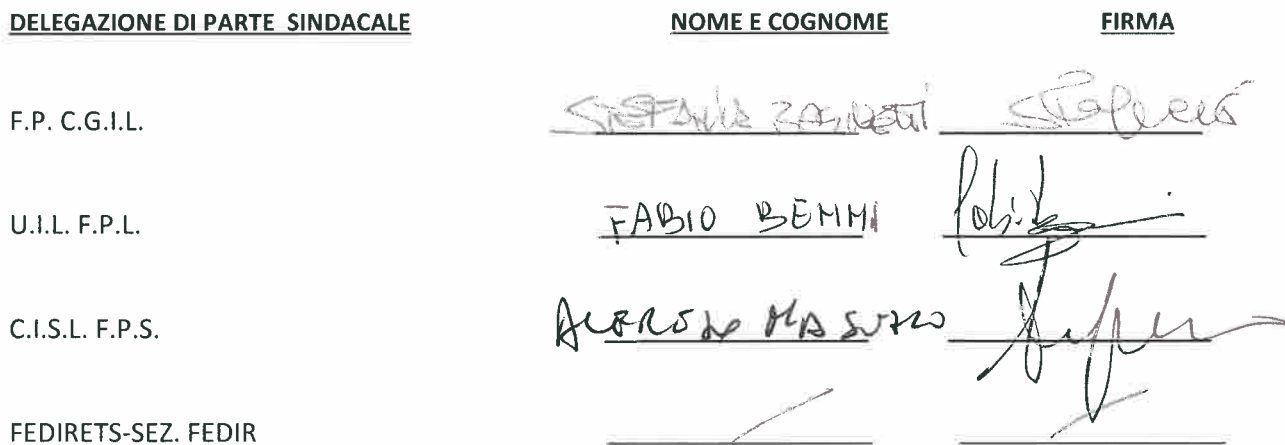 DELEGAZIONE DI PARTE SINDACALE NOME E COGNOME FIRMA
F.P. C.G.I.L. STEFANIA
U.I.L. F.P.L. FABIO BEMMI
C.I.S.L. F.P.S.
FEDIRETS-SEZ. FEDIR